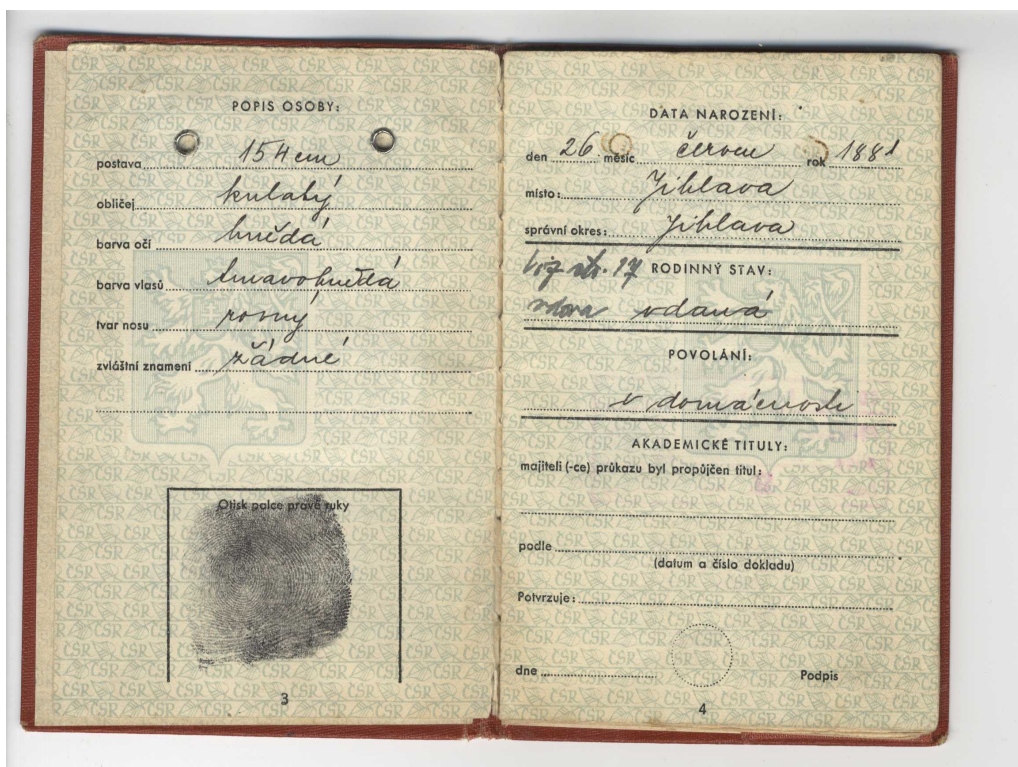 POPIS OSOBY:
postava 154 cm
obličej kulatý
barva očí hnědá
barva vlasů tmavohnědá
tvar nosu rovný
zvláštní znamení žádné
Otisk palce pravé ruky
3
DATA NAROZENÍ:
den 26 měsíc červen rok 1881
místo: Jihlava
správní okres: Jihlava
viz str. 17 RODINNÝ STAV:
vdova vdaná
POVOLÁNÍ:
v domácnosti
AKADEMICKÉ TITULY:
majiteli (-ce) průkazu byl propůjčen titul:
podle
(datum a číslo dokladu)
Potvrzuje:
dne Podpis
4